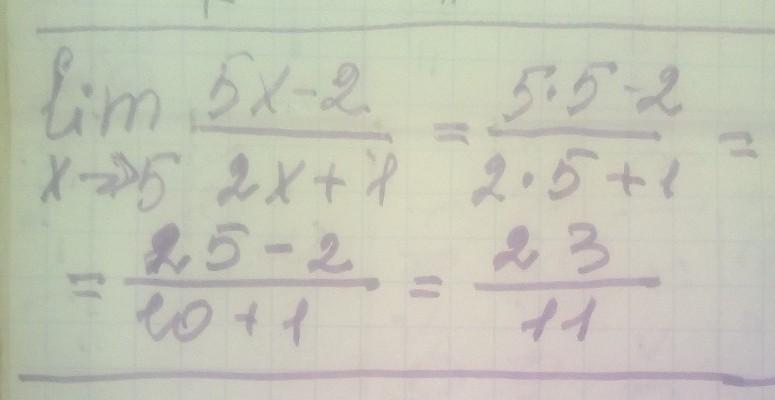 lim 5x-2 / 2x+1 = 5·5-2 / 2·5+1 =
x→5
= 25-2 / 10+1 = 23 / 11